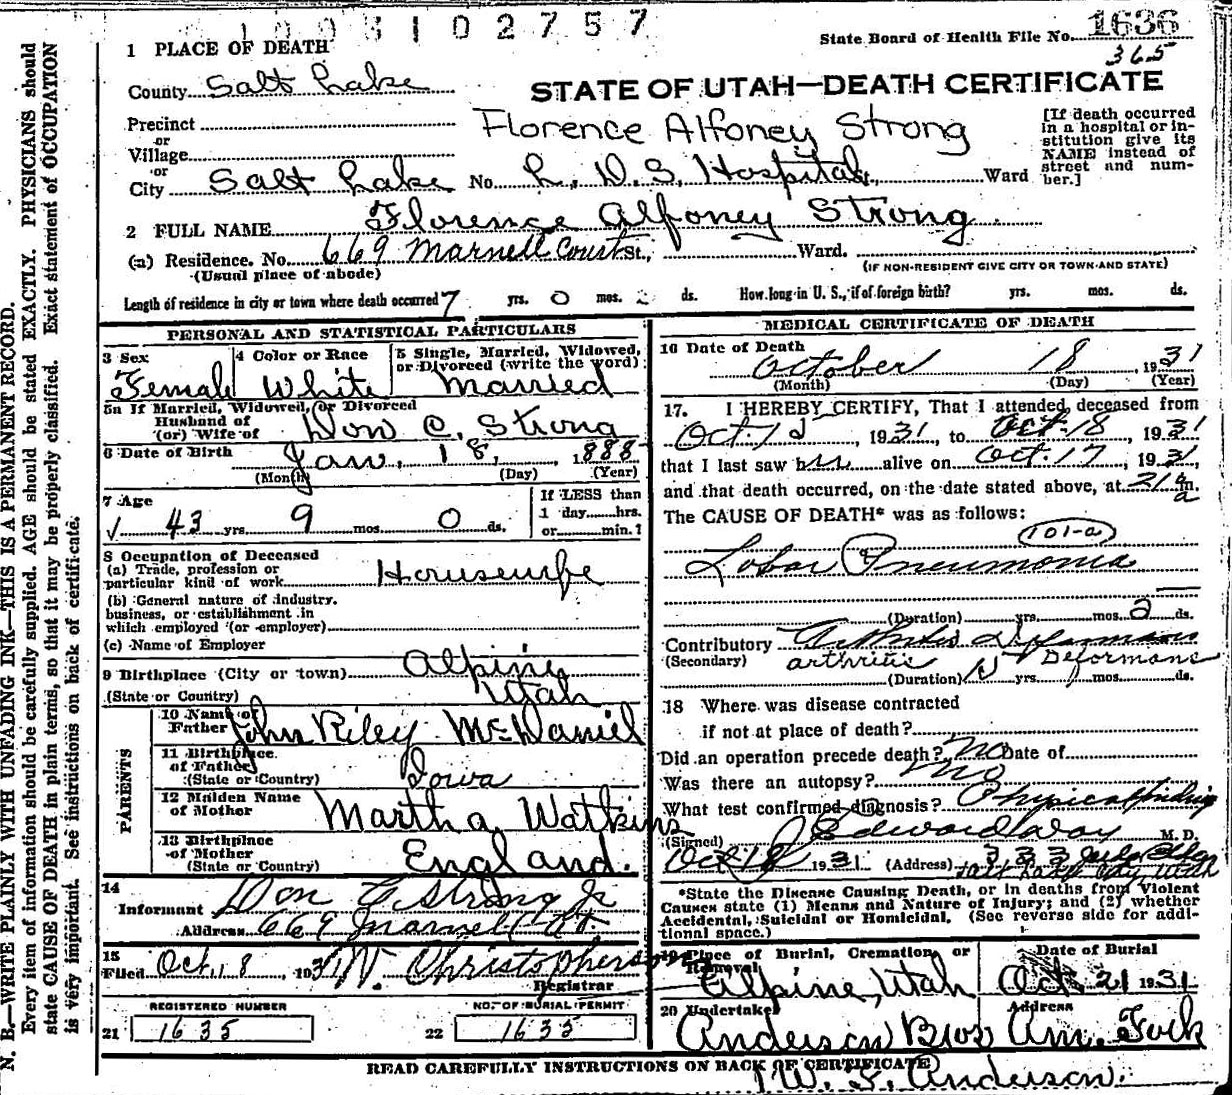 1 0 0 3 1 0 2 7 5 7
1636
State Board of Health File No.
365
1 PLACE OF DEATH
County Salt Lake
STATE OF UTAH—DEATH CERTIFICATE
Precinct
or
Village
or
City Salt Lake No. L. D. S. Hospital St., Ward
Florence Alfoney Strong
[If death occurred in a hospital or institution give its NAME instead of street and number.]
2 FULL NAME Florence Alfoney Strong
(a) Residence. No. 669 Marnell Court St., Ward.
(Usual place of abode)
(IF NON-RESIDENT GIVE CITY OR TOWN AND STATE)
Length of residence in city or town where death occurred 7 yrs. 0 mos. 2 ds. How long in U. S., if of foreign birth? yrs. mos. ds.
PERSONAL AND STATISTICAL PARTICULARS
3 Sex
Female
4 Color or Race
White
5 Single, Married, Widowed, or Divorced (write the word)
Married
5a If Married, Widowed, or Divorced
Husband of
(or) Wife of Don C. Strong
6 Date of Birth Jan. 18, 1888
(Month) (Day) (Year)
7 Age
43 yrs. 9 mos. 0 ds.
If LESS than
1 day......hrs.
or......min.?
8 Occupation of Deceased
(a) Trade, profession or
particular kind of work Housewife
(b) General nature of industry,
business, or establishment in
which employed (or employer)
(c) Name of Employer
9 Birthplace (City or town) Alpine
(State or Country) Utah
PARENTS
10 Name of Father John Riley McDaniel
11 Birthplace of Father
(State or Country) Iowa
12 Maiden Name of Mother Martha Watkins
13 Birthplace of Mother
(State or Country) England.
14
Informant Don C. Strong Jr
Address 669 Marnell Ct.
15
Filed Oct. 18, 1931 W. Christopherson
Registrar
REGISTERED NUMBER
21 1635
NO. OF BURIAL PERMIT
22 1635
MEDICAL CERTIFICATE OF DEATH
16 Date of Death
October 18, 1931
(Month) (Day) (Year)
17. I HEREBY CERTIFY, That I attended deceased from
Oct. 15, 1931, to Oct. 18, 1931
that I last saw her alive on Oct. 17, 1931,
and that death occurred, on the date stated above, at m.
The CAUSE OF DEATH* was as follows:
101-a
Lobar Pneumonia
(Duration) yrs. mos. 2 ds.
Contributory Arthritis Deformans
(Secondary) arthritis Deformans
(Duration) 15 yrs. mos. ds.
18 Where was disease contracted
if not at place of death?
Did an operation precede death? No Date of
Was there an autopsy? No
What test confirmed diagnosis? Physical finding
(Signed) J Edward Day M. D.
Oct 18, 1931. (Address) 333
Salt Lake City Utah
*State the Disease Causing Death, or in deaths from Violent
Causes state (1) Means and Nature of Injury; and (2) whether
Accidental, Suicidal or Homicidal. (See reverse side for addi-
tional space.)
19 Place of Burial, Cremation, or Removal
Alpine, Utah
Date of Burial
Oct. 21 1931
20 Undertaker
Anderson Bros
Address
Am. Fork
READ CAREFULLY INSTRUCTIONS ON BACK OF CERTIFICATE
W. F. Anderson.
N. B.—WRITE PLAINLY WITH UNFADING INK—THIS IS A PERMANENT RECORD.
Every item of information should be carefully supplied. AGE should be stated EXACTLY. PHYSICIANS should
state CAUSE OF DEATH in plain terms, so that it may be properly classified. Exact statement of OCCUPATION
is very important. See instructions on back of certificate.